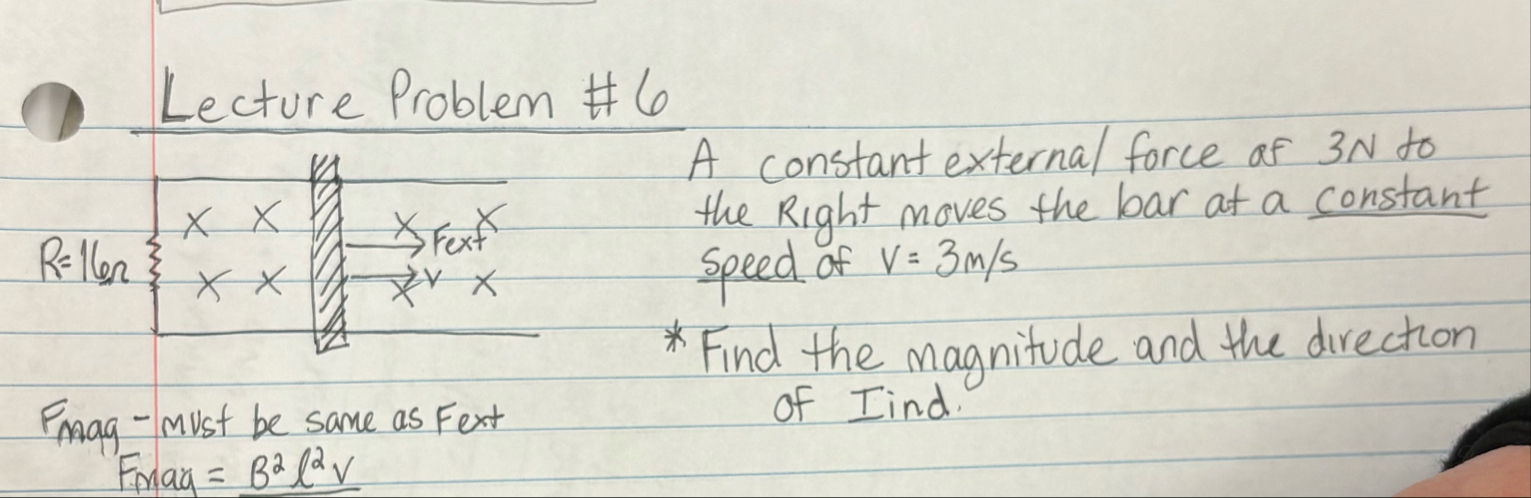 Lecture Problem #6
A constant external force of 3N to
the Right moves the bar at a constant
speed of V = 3m/s
X X X X
Fext
R=16Ω
X X X V X
* Find the magnitude and the direction
of Iind.
Fmag - must be same as Fext
Fmag = B² l² V